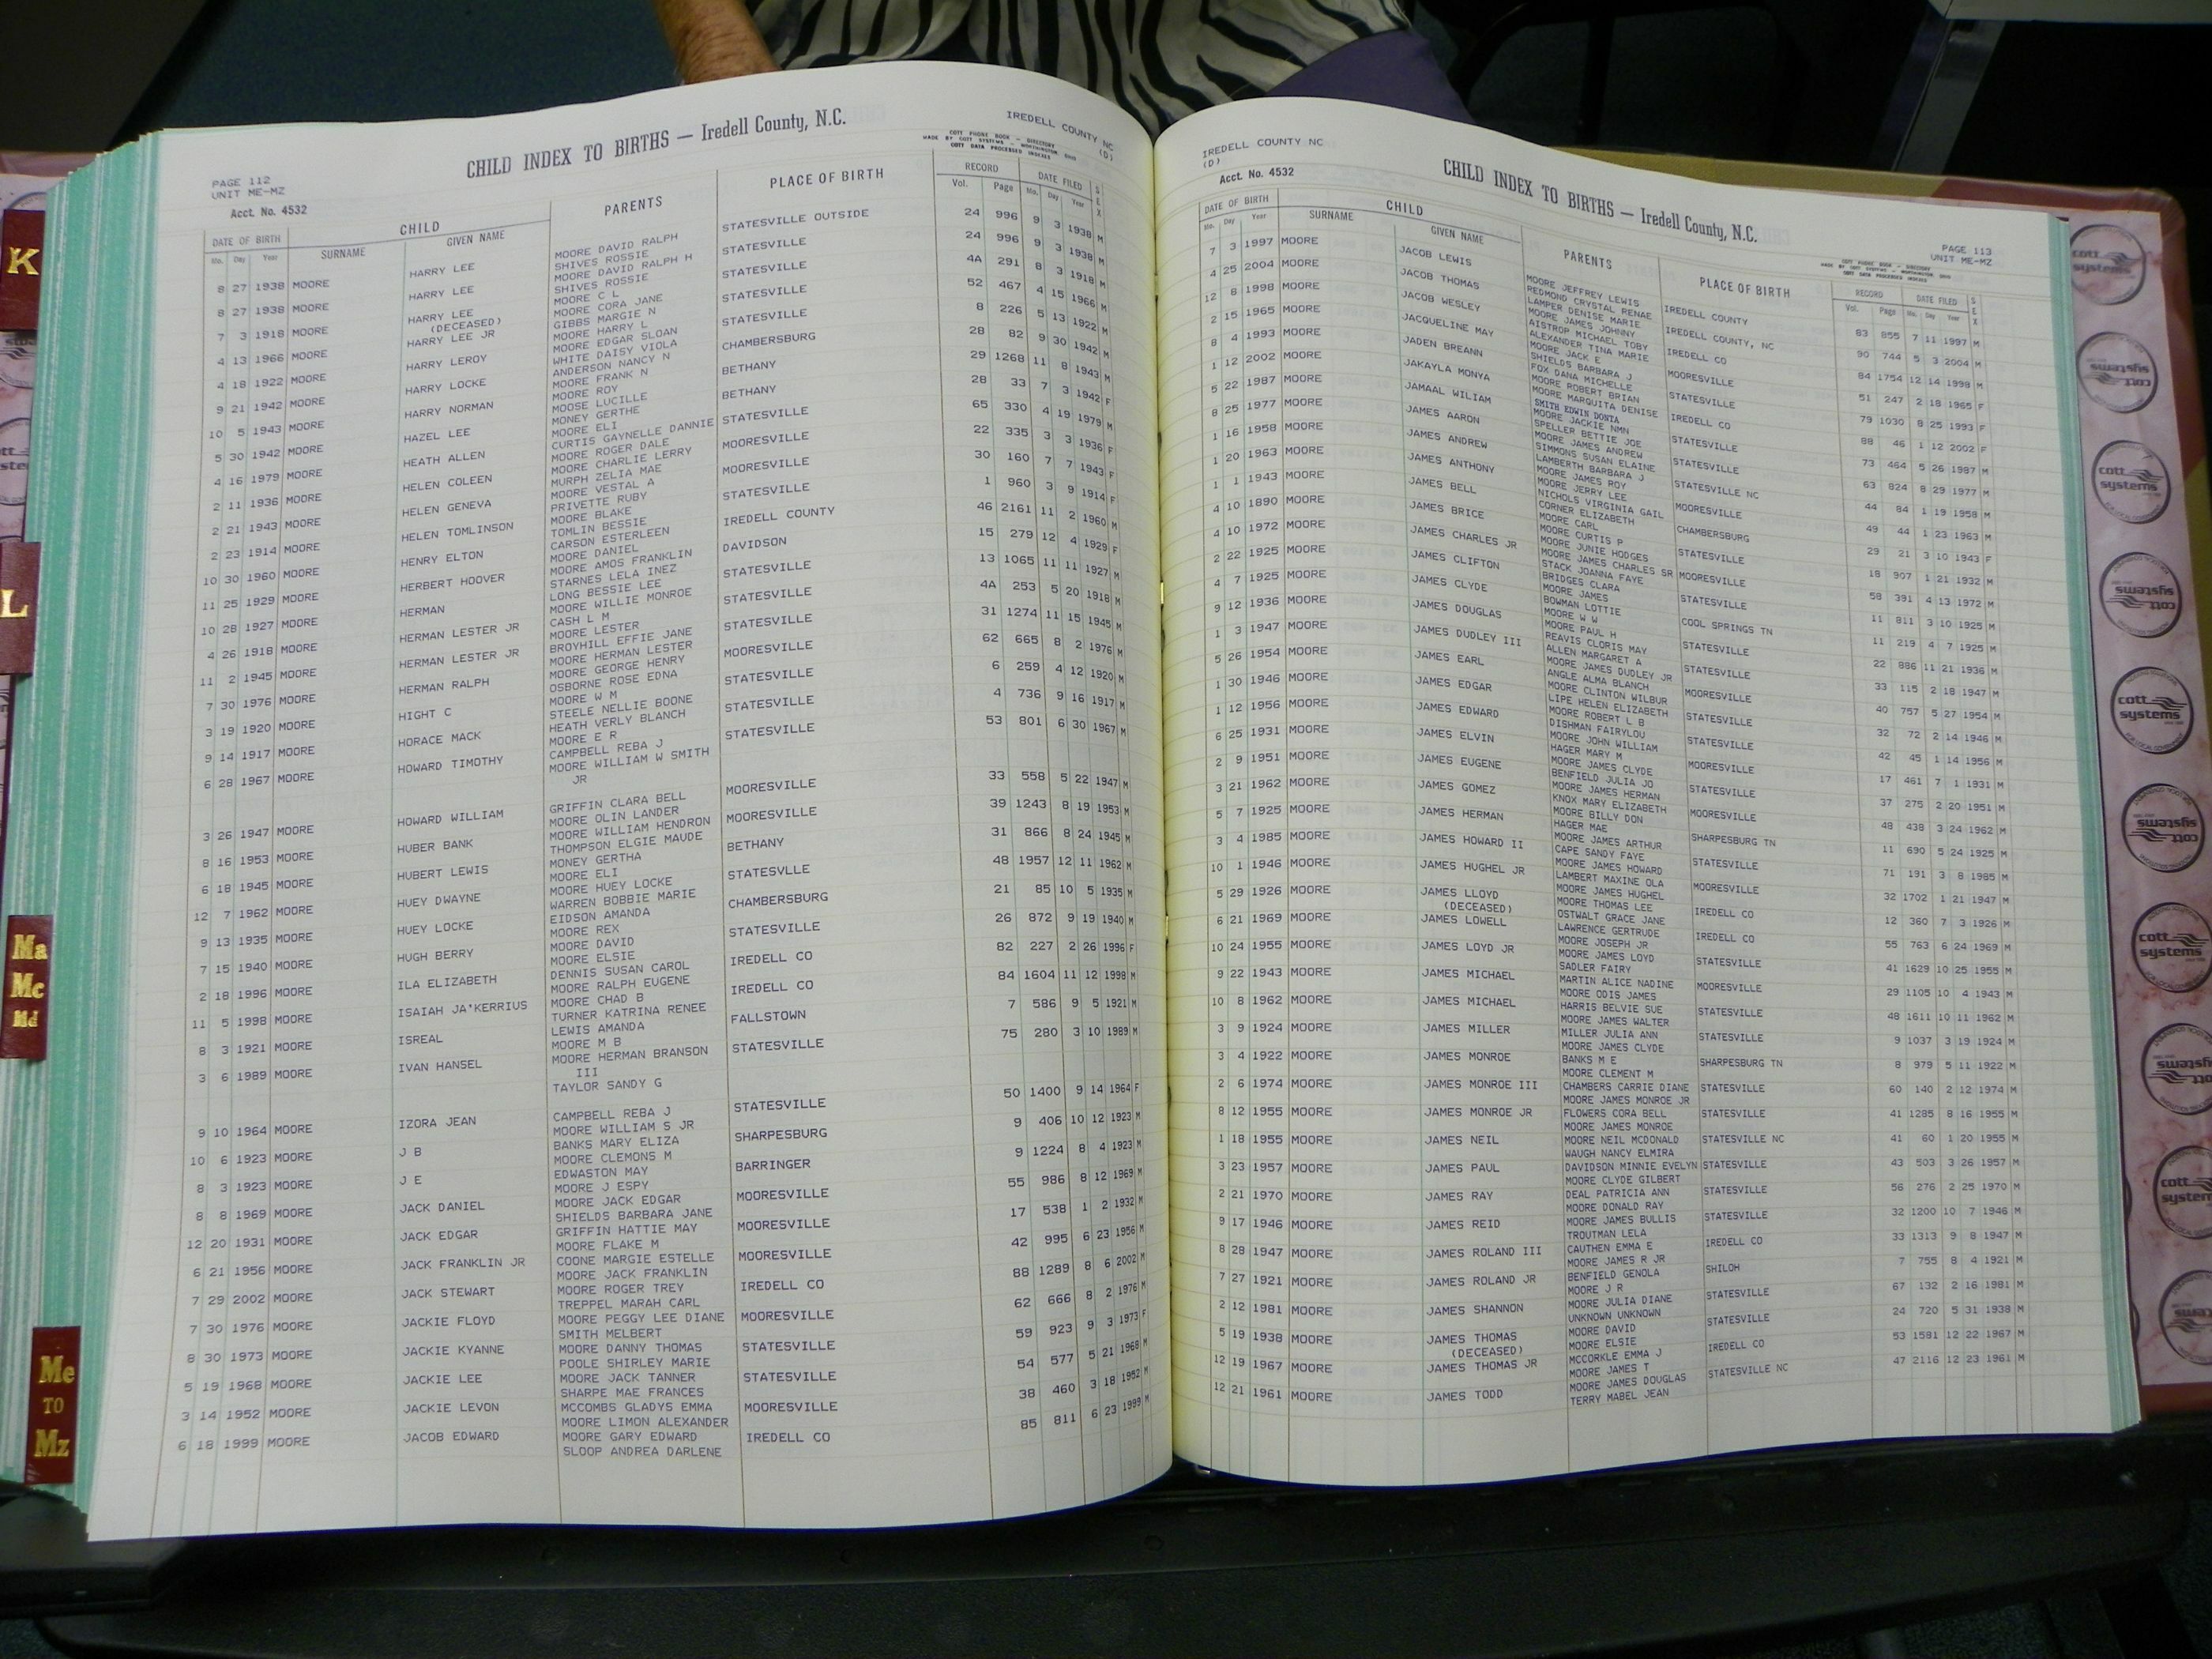 CHILD INDEX TO BIRTHS — Iredell County, N.C.
IREDELL COUNTY NC
(D)
PAGE 112
UNIT ME-MZ
Acct. No. 4532
COTT PHONE BOOK - DIRECTORY
MADE BY COTT SYSTEMS - WORTHINGTON, OHIO
COTT DATA PROCESSED INDEXES
DATE OF BIRTH CHILD PARENTS PLACE OF BIRTH RECORD DATE FILED SEX
Mo. Day Year SURNAME GIVEN NAME Vol. Page Mo. Day Year
8 27 1938 MOORE HARRY LEE MOORE DAVID RALPH STATESVILLE OUTSIDE 24 996 9 3 1938 M
SHIVES ROSSIE
8 27 1938 MOORE HARRY LEE MOORE DAVID RALPH H STATESVILLE 24 996 9 3 1938 M
SHIVES ROSSIE
7 3 1918 MOORE HARRY LEE MOORE C L STATESVILLE 4A 291 8 3 1918 M
(DECEASED) MOORE CORA JANE
4 13 1966 MOORE HARRY LEE JR GIBBS MARGIE N STATESVILLE 52 467 4 15 1966 M
MOORE HARRY L
4 18 1922 MOORE HARRY LEROY MOORE EDGAR SLOAN STATESVILLE 8 226 5 13 1922 M
WHITE DAISY VIOLA
9 21 1942 MOORE HARRY LOCKE ANDERSON NANCY N CHAMBERSBURG 28 82 9 30 1942 M
MOORE FRANK N
10 5 1943 MOORE HARRY NORMAN MOORE ROY BETHANY 29 1268 11 8 1943 M
MOOSE LUCILLE
5 30 1942 MOORE HAZEL LEE MONEY GERTHE BETHANY 28 33 7 3 1942 F
MOORE ELI
4 16 1979 MOORE HEATH ALLEN CURTIS GAYNELLE DANNIE STATESVILLE 65 330 4 19 1979 M
MOORE ROGER DALE
2 11 1936 MOORE HELEN COLEEN MOORE CHARLIE LERRY MOORESVILLE 22 335 3 3 1936 F
MURPH ZELIA MAE
2 21 1943 MOORE HELEN GENEVA MOORE VESTAL A MOORESVILLE 30 160 7 7 1943 F
PRIVETTE RUBY
2 23 1914 MOORE HELEN TOMLINSON MOORE BLAKE STATESVILLE 1 960 3 9 1914 F
TOMLIN BESSIE
10 30 1960 MOORE HENRY ELTON CARSON ESTERLEEN IREDELL COUNTY 46 2161 11 2 1960 M
MOORE DANIEL
11 25 1929 MOORE HERBERT HOOVER MOORE AMOS FRANKLIN DAVIDSON 15 279 12 4 1929 F
STARNES LELA INEZ
10 28 1927 MOORE HERMAN LONG BESSIE LEE STATESVILLE 13 1065 11 11 1927 M
MOORE WILLIE MONROE
4 26 1918 MOORE HERMAN LESTER JR CASH L M STATESVILLE 4A 253 5 20 1918 M
MOORE LESTER
11 2 1945 MOORE HERMAN LESTER JR BROYHILL EFFIE JANE STATESVILLE 31 1274 11 15 1945 M
MOORE HERMAN LESTER
7 30 1976 MOORE HERMAN RALPH MOORE GEORGE HENRY MOORESVILLE 62 665 8 2 1976 M
OSBORNE ROSE EDNA
3 19 1920 MOORE HIGHT C MOORE W M STATESVILLE 6 259 4 12 1920 M
STEELE NELLIE BOONE
9 14 1917 MOORE HORACE MACK HEATH VERLY BLANCH STATESVILLE 4 736 9 16 1917 M
MOORE E R
6 28 1967 MOORE HOWARD TIMOTHY CAMPBELL REBA J STATESVILLE 53 801 6 30 1967 M
MOORE WILLIAM W SMITH
JR
3 26 1947 MOORE HOWARD WILLIAM GRIFFIN CLARA BELL MOORESVILLE 33 558 5 22 1947 M
MOORE OLIN LANDER
8 16 1953 MOORE HUBER BANK MOORE WILLIAM HENDRON MOORESVILLE 39 1243 8 19 1953 M
THOMPSON ELGIE MAUDE
6 18 1945 MOORE HUBERT LEWIS MONEY GERTHA BETHANY 31 866 8 24 1945 M
MOORE ELI
12 7 1962 MOORE HUEY DWAYNE MOORE HUEY LOCKE STATESVLLE 48 1957 12 11 1962 M
WARREN BOBBIE MARIE
9 13 1935 MOORE HUEY LOCKE EIDSON AMANDA CHAMBERSBURG 21 85 10 5 1935 M
MOORE REX
7 15 1940 MOORE HUGH BERRY MOORE DAVID STATESVILLE 26 872 9 19 1940 M
MOORE ELSIE
2 18 1996 MOORE ILA ELIZABETH DENNIS SUSAN CAROL IREDELL CO 82 227 2 26 1996 F
MOORE RALPH EUGENE
11 5 1998 MOORE ISAIAH JA'KERRIUS MOORE CHAD B IREDELL CO 84 1604 11 12 1998 M
TURNER KATRINA RENEE
8 3 1921 MOORE ISREAL LEWIS AMANDA FALLSTOWN 7 586 9 5 1921 M
MOORE M B
3 6 1989 MOORE IVAN HANSEL MOORE HERMAN BRANSON STATESVILLE 75 280 3 10 1989 M
III
TAYLOR SANDY G
9 10 1964 MOORE IZORA JEAN CAMPBELL REBA J STATESVILLE 50 1400 9 14 1964 F
MOORE WILLIAM S JR
10 6 1923 MOORE J B BANKS MARY ELIZA SHARPESBURG 9 406 10 12 1923 M
MOORE CLEMONS M
8 3 1923 MOORE J E EDWASTON MAY BARRINGER 9 1224 8 4 1923 M
MOORE J ESPY
8 8 1969 MOORE JACK DANIEL MOORE JACK EDGAR MOORESVILLE 55 986 8 12 1969 M
SHIELDS BARBARA JANE
12 20 1931 MOORE JACK EDGAR GRIFFIN HATTIE MAY MOORESVILLE 17 538 1 2 1932 M
MOORE FLAKE M
6 21 1956 MOORE JACK FRANKLIN JR COONE MARGIE ESTELLE MOORESVILLE 42 995 6 23 1956 M
MOORE JACK FRANKLIN
7 29 2002 MOORE JACK STEWART MOORE ROGER TREY IREDELL CO 88 1289 8 6 2002 M
TREPPEL MARAH CARL
7 30 1976 MOORE JACKIE FLOYD MOORE PEGGY LEE DIANE MOORESVILLE 62 666 8 2 1976 M
SMITH MELBERT
8 30 1973 MOORE JACKIE KYANNE MOORE DANNY THOMAS STATESVILLE 59 923 9 3 1973 F
POOLE SHIRLEY MARIE
5 19 1968 MOORE JACKIE LEE MOORE JACK TANNER STATESVILLE 54 577 5 21 1968 M
SHARPE MAE FRANCES
3 14 1952 MOORE JACKIE LEVON MCCOMBS GLADYS EMMA MOORESVILLE 38 460 3 18 1952 M
MOORE LIMON ALEXANDER
6 18 1999 MOORE JACOB EDWARD MOORE GARY EDWARD IREDELL CO 85 811 6 23 1999 M
SLOOP ANDREA DARLENE
IREDELL COUNTY NC
(D)
Acct. No. 4532
CHILD INDEX TO BIRTHS — Iredell County, N.C.
PAGE 113
UNIT ME-MZ
DATE OF BIRTH CHILD PARENTS PLACE OF BIRTH RECORD DATE FILED SEX
Mo. Day Year SURNAME GIVEN NAME Vol. Page Mo. Day Year
7 3 1997 MOORE JACOB LEWIS MOORE JEFFREY LEWIS IREDELL COUNTY 83 855 7 11 1997 M
REDMOND CRYSTAL RENAE
4 25 2004 MOORE JACOB THOMAS LAMPER DENISE MARIE IREDELL COUNTY, NC 90 744 5 3 2004 M
MOORE JAMES JOHNNY
12 8 1998 MOORE JACOB WESLEY AISTROP MICHAEL TOBY IREDELL CO 84 1754 12 14 1998 M
ALEXANDER TINA MARIE
2 15 1965 MOORE JACQUELINE MAY MOORE JACK E MOORESVILLE 51 247 2 18 1965 F
SHIELDS BARBARA J
8 4 1993 MOORE JADEN BREANN FOX DANA MICHELLE STATESVILLE 79 1030 8 25 1993 F
MOORE ROBERT BRIAN
1 12 2002 MOORE JAKAYLA MONYA MOORE MARQUITA DENISE IREDELL CO 88 46 1 12 2002 F
SMITH EDWIN DONTA
5 22 1987 MOORE JAMAAL WILIAM MOORE JACKIE NMN STATESVILLE 73 464 5 26 1987 M
SPELLER BETTIE JOE
8 25 1977 MOORE JAMES AARON MOORE JAMES ANDREW STATESVILLE 63 824 8 29 1977 M
SIMMONS SUSAN ELAINE
1 16 1958 MOORE JAMES ANDREW LAMBERTH BARBARA J STATESVILLE NC 44 84 1 19 1958 M
MOORE JAMES ROY
1 20 1963 MOORE JAMES ANTHONY MOORE JERRY LEE MOORESVILLE 49 44 1 23 1963 M
NICHOLS VIRGINIA GAIL
1 1 1943 MOORE JAMES BELL CORNER ELIZABETH CHAMBERSBURG 29 21 3 10 1943 F
MOORE CARL
4 10 1890 MOORE JAMES BRICE MOORE CURTIS P STATESVILLE 18 907 1 21 1932 M
MOORE JUNIE HODGES
4 10 1972 MOORE JAMES CHARLES JR MOORE JAMES CHARLES SR MOORESVILLE 58 391 4 13 1972 M
STACK JOANNA FAYE
2 22 1925 MOORE JAMES CLIFTON BRIDGES CLARA STATESVILLE 11 811 3 10 1925 M
MOORE JAMES
4 7 1925 MOORE JAMES CLYDE BOWMAN LOTTIE COOL SPRINGS TN 11 219 4 7 1925 M
MOORE W W
9 12 1936 MOORE JAMES DOUGLAS MOORE PAUL H STATESVILLE 22 886 11 21 1936 M
REAVIS CLORIS MAY
1 3 1947 MOORE JAMES DUDLEY III ALLEN MARGARET A MOORESVILLE 33 115 2 18 1947 M
MOORE JAMES DUDLEY JR
5 26 1954 MOORE JAMES EARL ANGLE ALMA BLANCH STATESVILLE 40 757 5 27 1954 M
MOORE CLINTON WILBUR
1 30 1946 MOORE JAMES EDGAR LIPE HELEN ELIZABETH STATESVILLE 32 72 2 14 1946 M
MOORE ROBERT L B
1 12 1956 MOORE JAMES EDWARD DISHMAN FAIRYLOU MOORESVILLE 42 45 1 14 1956 M
MOORE JOHN WILLIAM
6 25 1931 MOORE JAMES ELVIN HAGER MARY M STATESVILLE 17 461 7 1 1931 M
MOORE JAMES CLYDE
2 9 1951 MOORE JAMES EUGENE BENFIELD JULIA JO MOORESVILLE 37 275 2 20 1951 M
MOORE JAMES HERMAN
3 21 1962 MOORE JAMES GOMEZ KNOX MARY ELIZABETH SHARPESBURG TN 48 438 3 24 1962 M
MOORE BILLY DON
5 7 1925 MOORE JAMES HERMAN HAGER MAE STATESVILLE 11 690 5 24 1925 M
MOORE JAMES ARTHUR
3 4 1985 MOORE JAMES HOWARD II CAPE SANDY FAYE MOORESVILLE 71 191 3 8 1985 M
MOORE JAMES HOWARD
10 1 1946 MOORE JAMES HUGHEL JR LAMBERT MAXINE OLA IREDELL CO 32 1702 1 21 1947 M
MOORE JAMES HUGHEL
5 29 1926 MOORE JAMES LLOYD MOORE THOMAS LEE IREDELL CO 12 360 7 3 1926 M
(DECEASED) OSTWALT GRACE JANE
6 21 1969 MOORE JAMES LOWELL LAWRENCE GERTRUDE STATESVILLE 55 763 6 24 1969 M
MOORE JOSEPH JR
10 24 1955 MOORE JAMES LOYD JR MOORE JAMES LOYD MOORESVILLE 41 1629 10 25 1955 M
SADLER FAIRY
9 22 1943 MOORE JAMES MICHAEL MARTIN ALICE NADINE STATESVILLE 29 1105 10 4 1943 M
MOORE ODIS JAMES
10 8 1962 MOORE JAMES MICHAEL HARRIS BELVIE SUE STATESVILLE 48 1611 10 11 1962 M
MOORE JAMES WALTER
3 9 1924 MOORE JAMES MILLER MILLER JULIA ANN STATESVILLE 9 1037 3 19 1924 M
MOORE JAMES CLYDE
3 4 1922 MOORE JAMES MONROE BANKS M E SHARPESBURG TN 8 979 5 11 1922 M
MOORE CLEMENT M
2 6 1974 MOORE JAMES MONROE III CHAMBERS CARRIE DIANE STATESVILLE 60 140 2 12 1974 M
MOORE JAMES MONROE JR
8 12 1955 MOORE JAMES MONROE JR FLOWERS CORA BELL STATESVILLE 41 1285 8 16 1955 M
MOORE JAMES MONROE
1 18 1955 MOORE JAMES NEIL MOORE NEIL MCDONALD STATESVILLE NC 41 60 1 20 1955 M
WAUGH NANCY ELMIRA
3 23 1957 MOORE JAMES PAUL DAVIDSON MINNIE EVELYN STATESVILLE 43 503 3 26 1957 M
MOORE CLYDE GILBERT
2 21 1970 MOORE JAMES RAY DEAL PATRICIA ANN STATESVILLE 56 276 2 25 1970 M
MOORE DONALD RAY
9 17 1946 MOORE JAMES REID MOORE JAMES BULLIS STATESVILLE 32 1200 10 7 1946 M
TROUTMAN LELA
8 28 1947 MOORE JAMES ROLAND III CAUTHEN EMMA E IREDELL CO 33 1313 9 8 1947 M
MOORE JAMES R JR
7 27 1921 MOORE JAMES ROLAND JR BENFIELD GENOLA SHILOH 7 755 8 4 1921 M
MOORE J R
2 12 1981 MOORE JAMES SHANNON MOORE JULIA DIANE STATESVILLE 67 132 2 16 1981 M
UNKNOWN UNKNOWN
5 19 1938 MOORE JAMES THOMAS MOORE DAVID STATESVILLE 24 720 5 31 1938 M
(DECEASED) MOORE ELSIE
12 19 1967 MOORE JAMES THOMAS JR MCCORKLE EMMA J IREDELL CO 53 1581 12 22 1967 M
MOORE JAMES T
12 21 1961 MOORE JAMES TODD MOORE JAMES DOUGLAS STATESVILLE NC 47 2116 12 23 1961 M
TERRY MABEL JEAN
K
L
Ma
Mc
Md
Me
TO
Mz
cott
systems